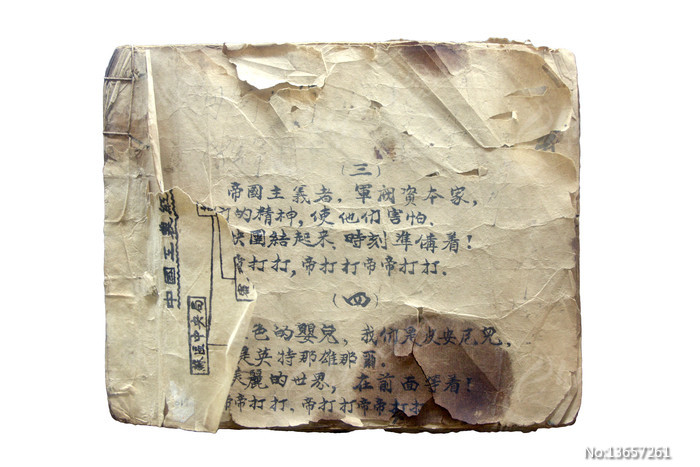 (三)
帝國主義者．軍閥資本家，
的精神，使他们害怕．
團結起来 時刻準備着！
打打，帝打打帝帝打打．
(四)
色的嬰兒，我们是皮安尼兒，
是英特那雄那爾．
麗的世界，在前面等着！
帝打打．帝打打帝帝打打
中國工農紅
蘇區中央局
No:13657261